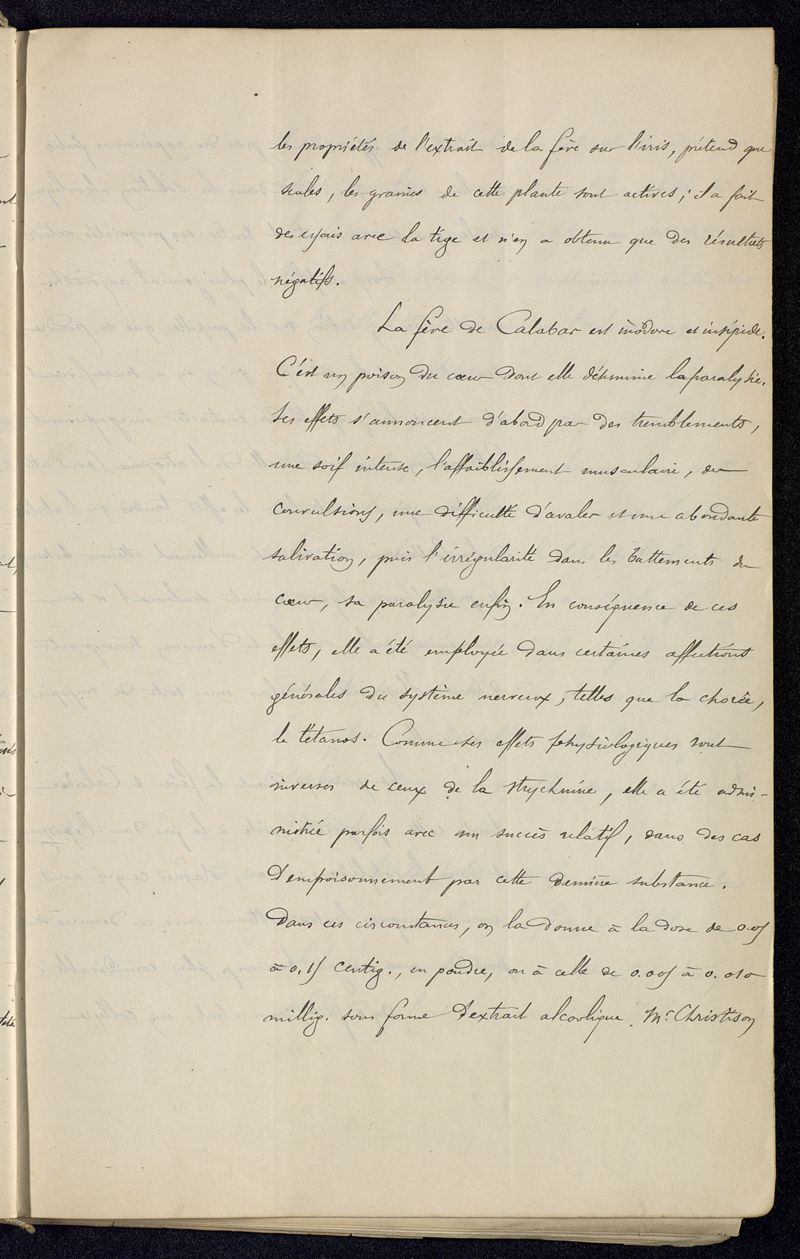 les propriétés de l'extrait de la fève sur l'iris, prétend que
seules, les graines de cette plante sont actives ; il a fait
des essais avec la tige et n'en a obtenu que des résultats
négatifs.
La fève de Calabar est inodore et insipide.
C'est un poison du cœur dont elle détermine la paralysie.
Ses effets s'annoncent d'abord par des tremblements,
une soif intense, l'affaiblissement musculaire, des
convulsions, une difficulté d'avaler et une abondante
salivation, puis l'irrégularité dans les battements du
cœur, sa paralysie enfin. En conséquence de ces
effets, elle a été employée dans certaines affections
générales du système nerveux, telles que la chorée,
le tétanos. Comme ses effets physiologiques sont
inverses de ceux de la strychnine, elle a été admi-
nistrée parfois avec un succès relatif, dans des cas
d'empoisonnement par cette dernière substance.
Dans ces circonstances, on la donne à la dose de 0.05
à 0.15 centig., en poudre, ou à celle de 0.005 à 0.010
millig. sous forme d'extrait alcoolique. Mr Christison